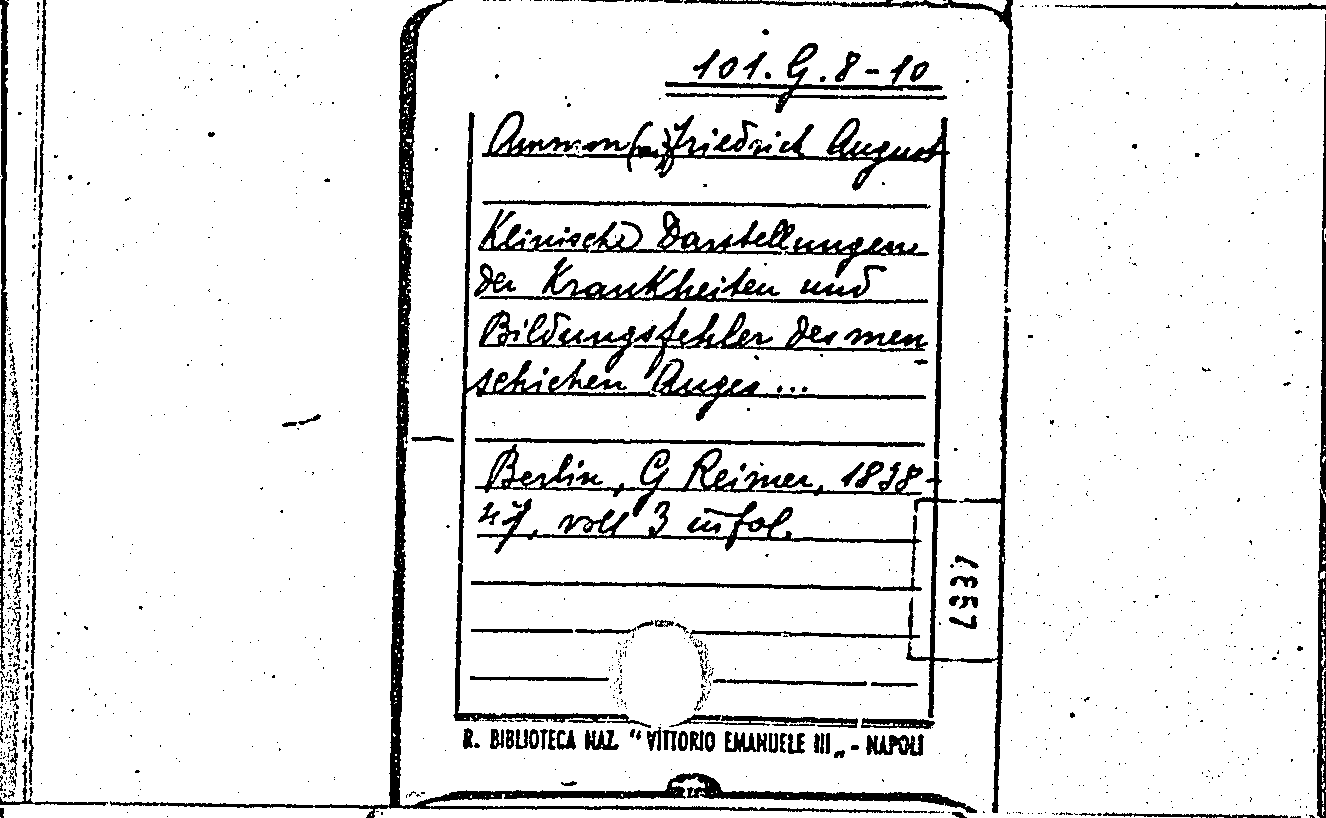 101. G. 8-10
Ammon (von) Friedrich August
Klinische Darstellungen
der Krankheiten und
Bildungsfehler des men
schichen Auges ...
Berlin, G Reimer, 1838-
47, voll 3 in fol.
R. BIBLIOTECA NAZ. "VITTORIO EMANUELE III„ - NAPOLI